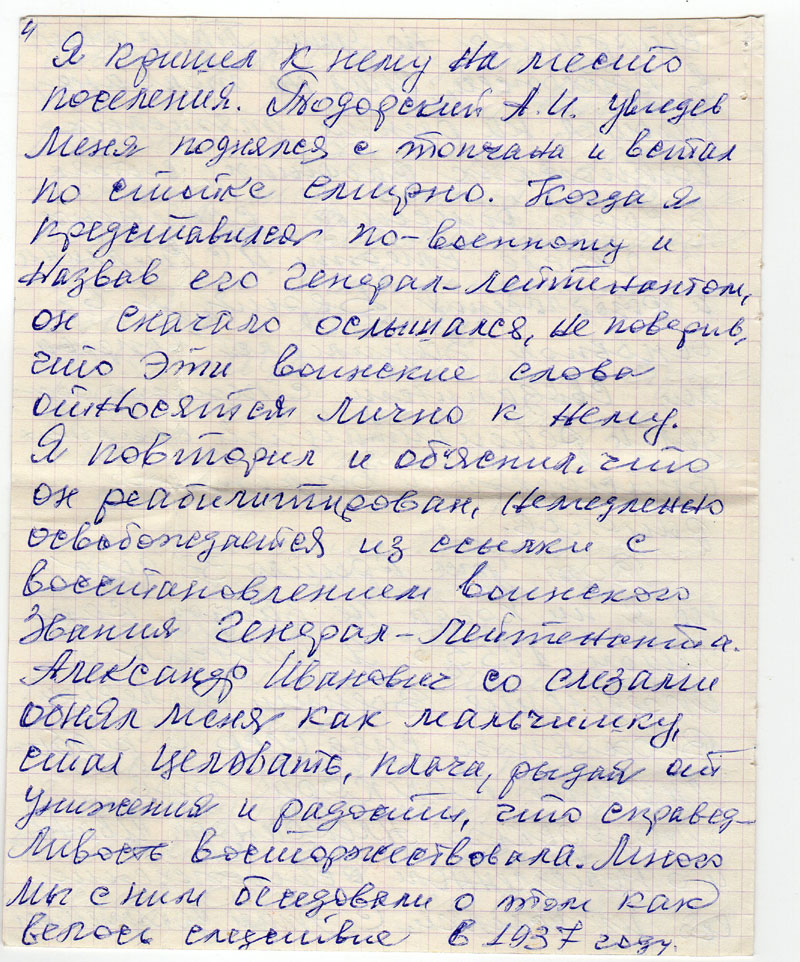 4
Я пришел к нему на место
поселения. Тодорский А.И. увидев
меня поднялся с топчана и встал
по стойке смирно. Когда я
представился по-военному и
назвав его генерал-лейтенантом,
он сначало ослышался, не поверив,
что эти воинские слова
относятся лично к нему.
Я повторил и объяснил, что
он реабилитирован, немедленно
освобождается из ссылки с
восстановлением воинского
звания генерал-лейтенанта.
Александр Иванович со слезами
обнял меня как мальчишку,
стал целовать, плача, рыдая от
унижения и радости, что справед-
ливость восторжествовала. Много
мы с ним беседовали о том как
велось следствие в 1937 году.